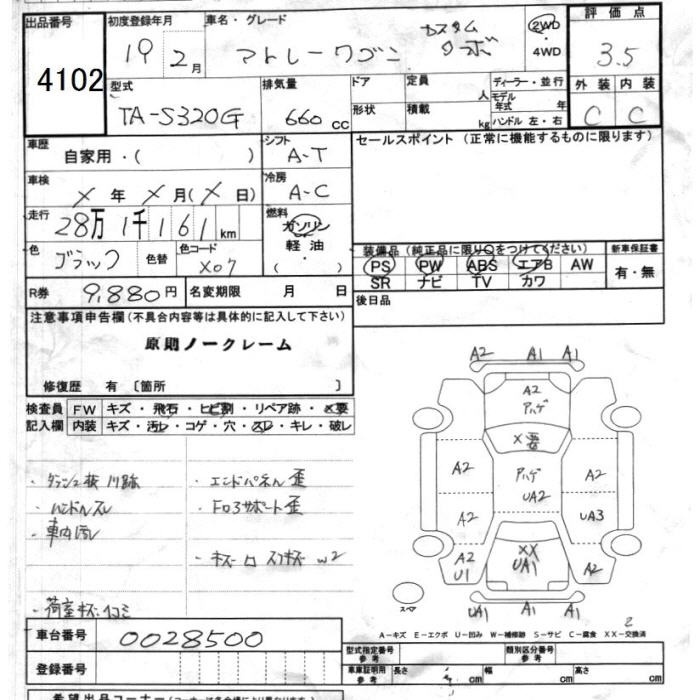 出品番号 初度登録年月 車名・グレード 評価点
4102 19 2月 アトレーワゴン カスタム ターボ 2WD・4WD 3.5
型式 排気量 ドア 定員 人 ディーラー・並行 外装 内装
TA-S320G 660cc 形状 積載 kg モデル年式 年 ハンドル 左・右 C C
車歴 自家用・( ) シフト A-T セールスポイント(正常に機能するものに限ります)
車検 X 年 X 月(X 日) 冷房 A-C
走行 28万1千161km 燃料 ガソリン 軽油 ・( )
色 ブラック 色替 色コード X07
装備品(純正品に限り○をつけてください) 新車保証書
PS PW ABS エアB AW 有・無
SR ナビ TV カワ
R券 9,880円 名変期限 月 日 後日品
注意事項申告欄(不具合内容等は具体的に記入して下さい)
原則ノークレーム
修復歴 有〔箇所 〕
検査員 FW キズ・飛石・ヒビ割・リペア跡・X要
記入欄 内装 キズ・汚レ・コゲ・穴・スレ・キレ・破レ
・エンドパネル歪
・ハンドルスレ
・Fロアサポート歪
・車内汚レ
・荷室キズ凹ミ
A2 A1 A1
A2
アハゲ
X要
A2 アハゲ A2
UA2
A2 UA3
A2 XX A2
U1 UA1
スペア
UA1 A1 A1
2
A-キズ E-エクボ U-凹み W-補修跡 S-サビ C-腐食 XX-交換済
車台番号 0028500
型式指定番号 参考 類別区分番号 参考
登録番号
車庫証明用 参考 長さ cm 幅 cm 高さ cm
希望出品コーナー